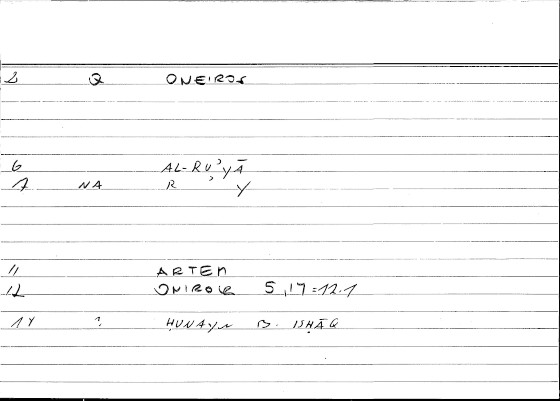 2 Q ONEIROS
6 AL-RUʾYĀ
7 NA R ʾ Y
11 ARTEM
12 ONIROCR 5,17=12.1
14 ? ḤUNAYN B. ISḤĀQ